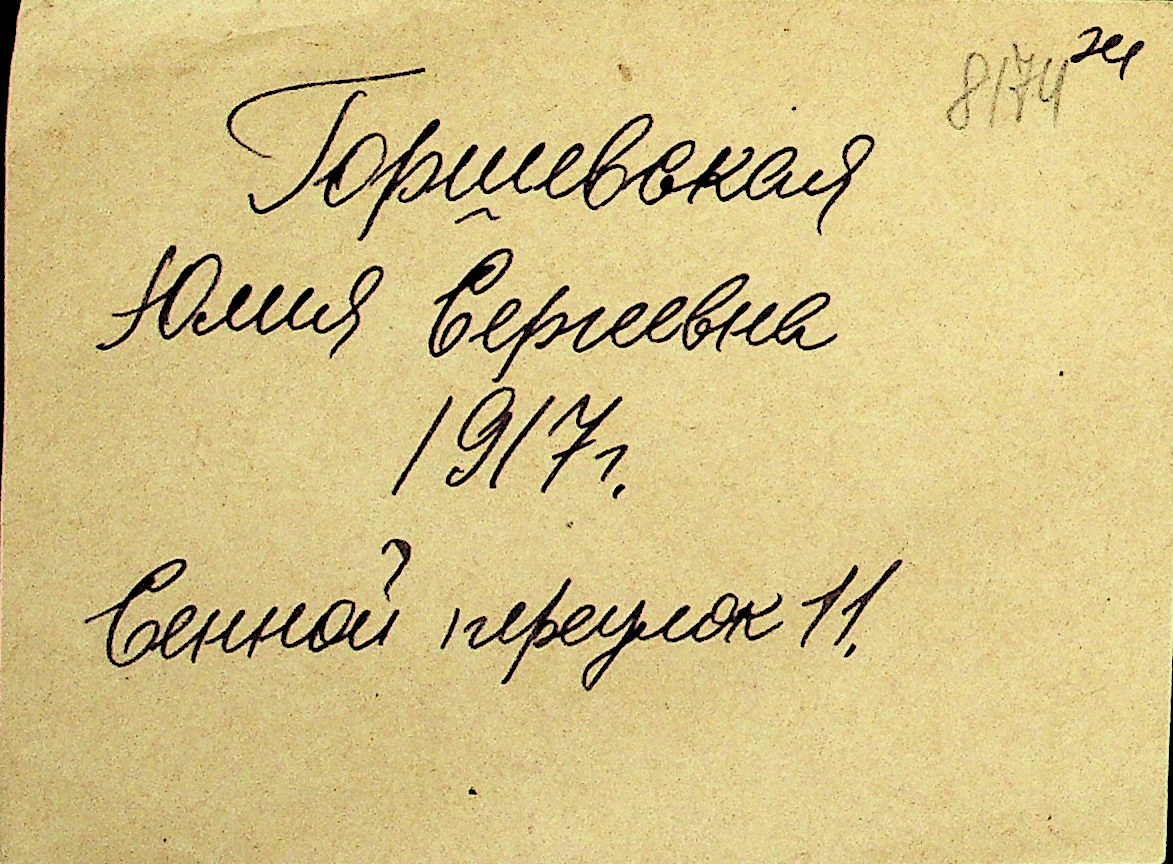 8174 ж
Горшевская
Юлия Сергеевна
1917 г.
Сенной переулок 11.